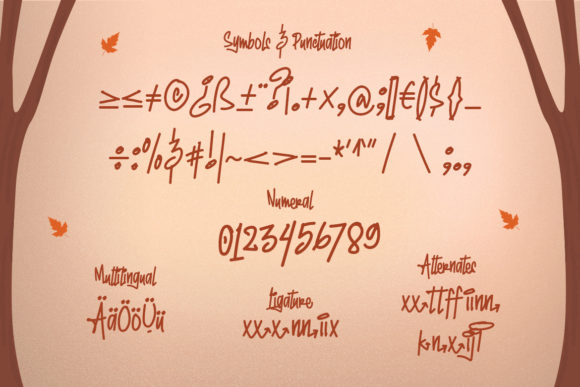 Symbols & Punctuation
≥≤≠©¿ß±¨?¡.+×,@;[]€()${}_
÷:%&#!|~<>=-*'^"/\;,°,
Numeral
0123456789
Multilingual
ÄäÖöÜü
Ligature
xx→x→nn→iix
Alternates
xx→ttffiinn→
k→n→x→ijl